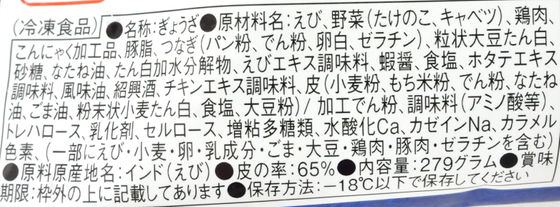 (冷凍食品) ●名称:ぎょうざ●原材料名:えび、野菜(たけのこ、キャベツ)、鶏肉、
こんにゃく加工品、豚脂、つなぎ(パン粉、でん粉、卵白、ゼラチン)、粒状大豆たん白、
砂糖、なたね油、たん白加水分解物、えびエキス調味料、蝦醤、食塩、ホタテエキス
調味料、風味油、紹興酒、チキンエキス調味料、皮(小麦粉、もち米粉、でん粉、なたね
油、ごま油、粉末状小麦たん白、食塩、大豆粉)/加工でん粉、調味料(アミノ酸等)、
トレハロース、乳化剤、セルロース、増粘多糖類、水酸化Ca、カゼインNa、カラメル
色素、(一部にえび・小麦・卵・乳成分・ごま・大豆・鶏肉・豚肉・ゼラチンを含む)
●原料原産地名:インド(えび)●皮の率:65%●内容量:279グラム●賞味
期限:枠外の上に記載してあります●保存方法:−18℃以下で保存してください